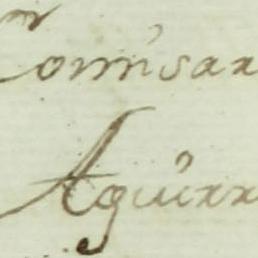 Comisar
Aguirr